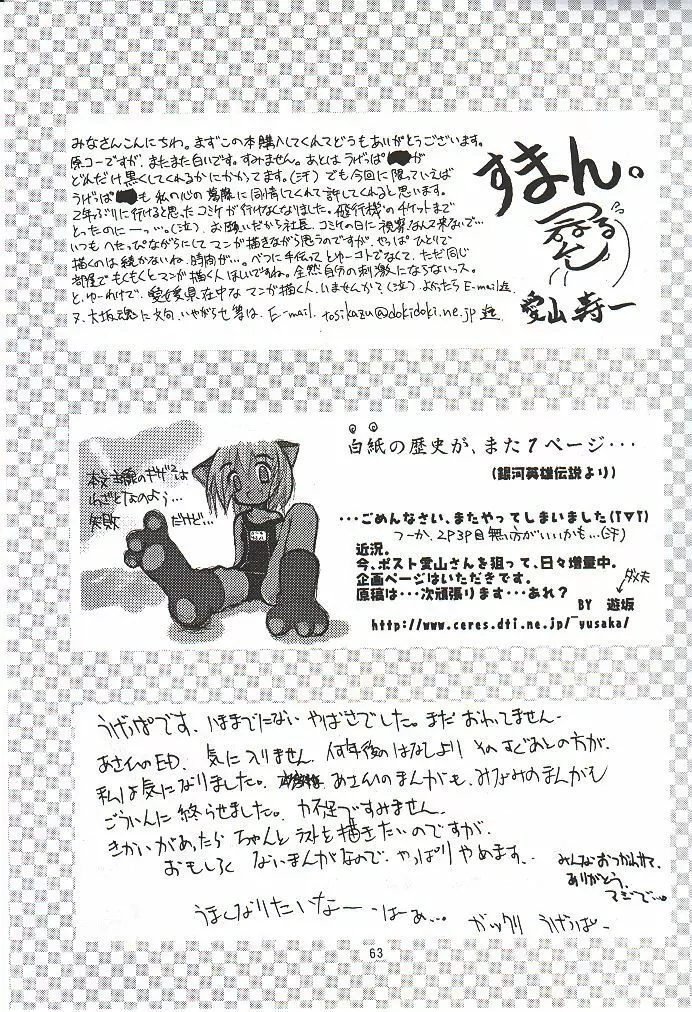 みなさんこんにちわ。まずこの本購入してくれてどうもありがとうございます。
原コーですが、またまた白いです。すみません。あとはうげっぱ が
どれだけ黒くしてくれるかにかかってます。(汗) でも今回に限っていえば
うげっぱ も 私の心の に同情してくれて許してくれると思います。
2年ぶりに行けると思ったコミケが行けなくなりました。飛行機のチケットまで
とったのにーっ…。(泣) お願いだから社長、コミケの日に視察なんて来ないで…
いつもへせっぴながらにしてマンガ描きながら思うのですが、やっぱひとりで
描くのは続かないね、時間が…。べつに手伝ってとゆーコトでなくて、ただ同じ
部屋でもくもくとマンガ描く人ほしいですね。全然自分の刺激にならないっス。
と、ゆーわけで、愛媛県在中なマンガ描く人、いませんか?(泣) よかったらE-mail迄
又、大坂魂に文句、いやがらせ等は、E-mail. tosikazu@dokidoki.ne.jp 迄
すまん。
愛山寿一
白紙の歴史が、また1ページ・・・
(銀河英雄伝説より)
本文主線のギザギザは
わざとなのよう…
失敗 だけど…
・・・ごめんなさい、またやってしまいました(T▽T)
つーか、2P3P目無い方がいいかも…(汗)
近況。
今、ポスト愛山さんを狙って、日々増量中。
企画ページはいただきです。
原稿は・・・次頑張ります・・・あれ?
ダメ夫
BY 遊坂
http://www.ceres.dti.ne.jp/~yusaka/
うげっぱです、いままでにない やばさでした。まだ おわってません。
あさんのED. 気に入りません。何年後のはなしより そのすぐあとの方が、
私は気になりました。 あさんのまんがも、みなみのまんがも
ごういんに 終らせました。力不足ですみません。
きかいがあったら ちゃんとラストを描きたいのですが、
おもしろく ないまんがなので、やっぱりやめます。
みんなおつかれさま、
ありがとう。
マジで…。
うまくなりたいなー はぁ… ガックリ うげっぱ。
63